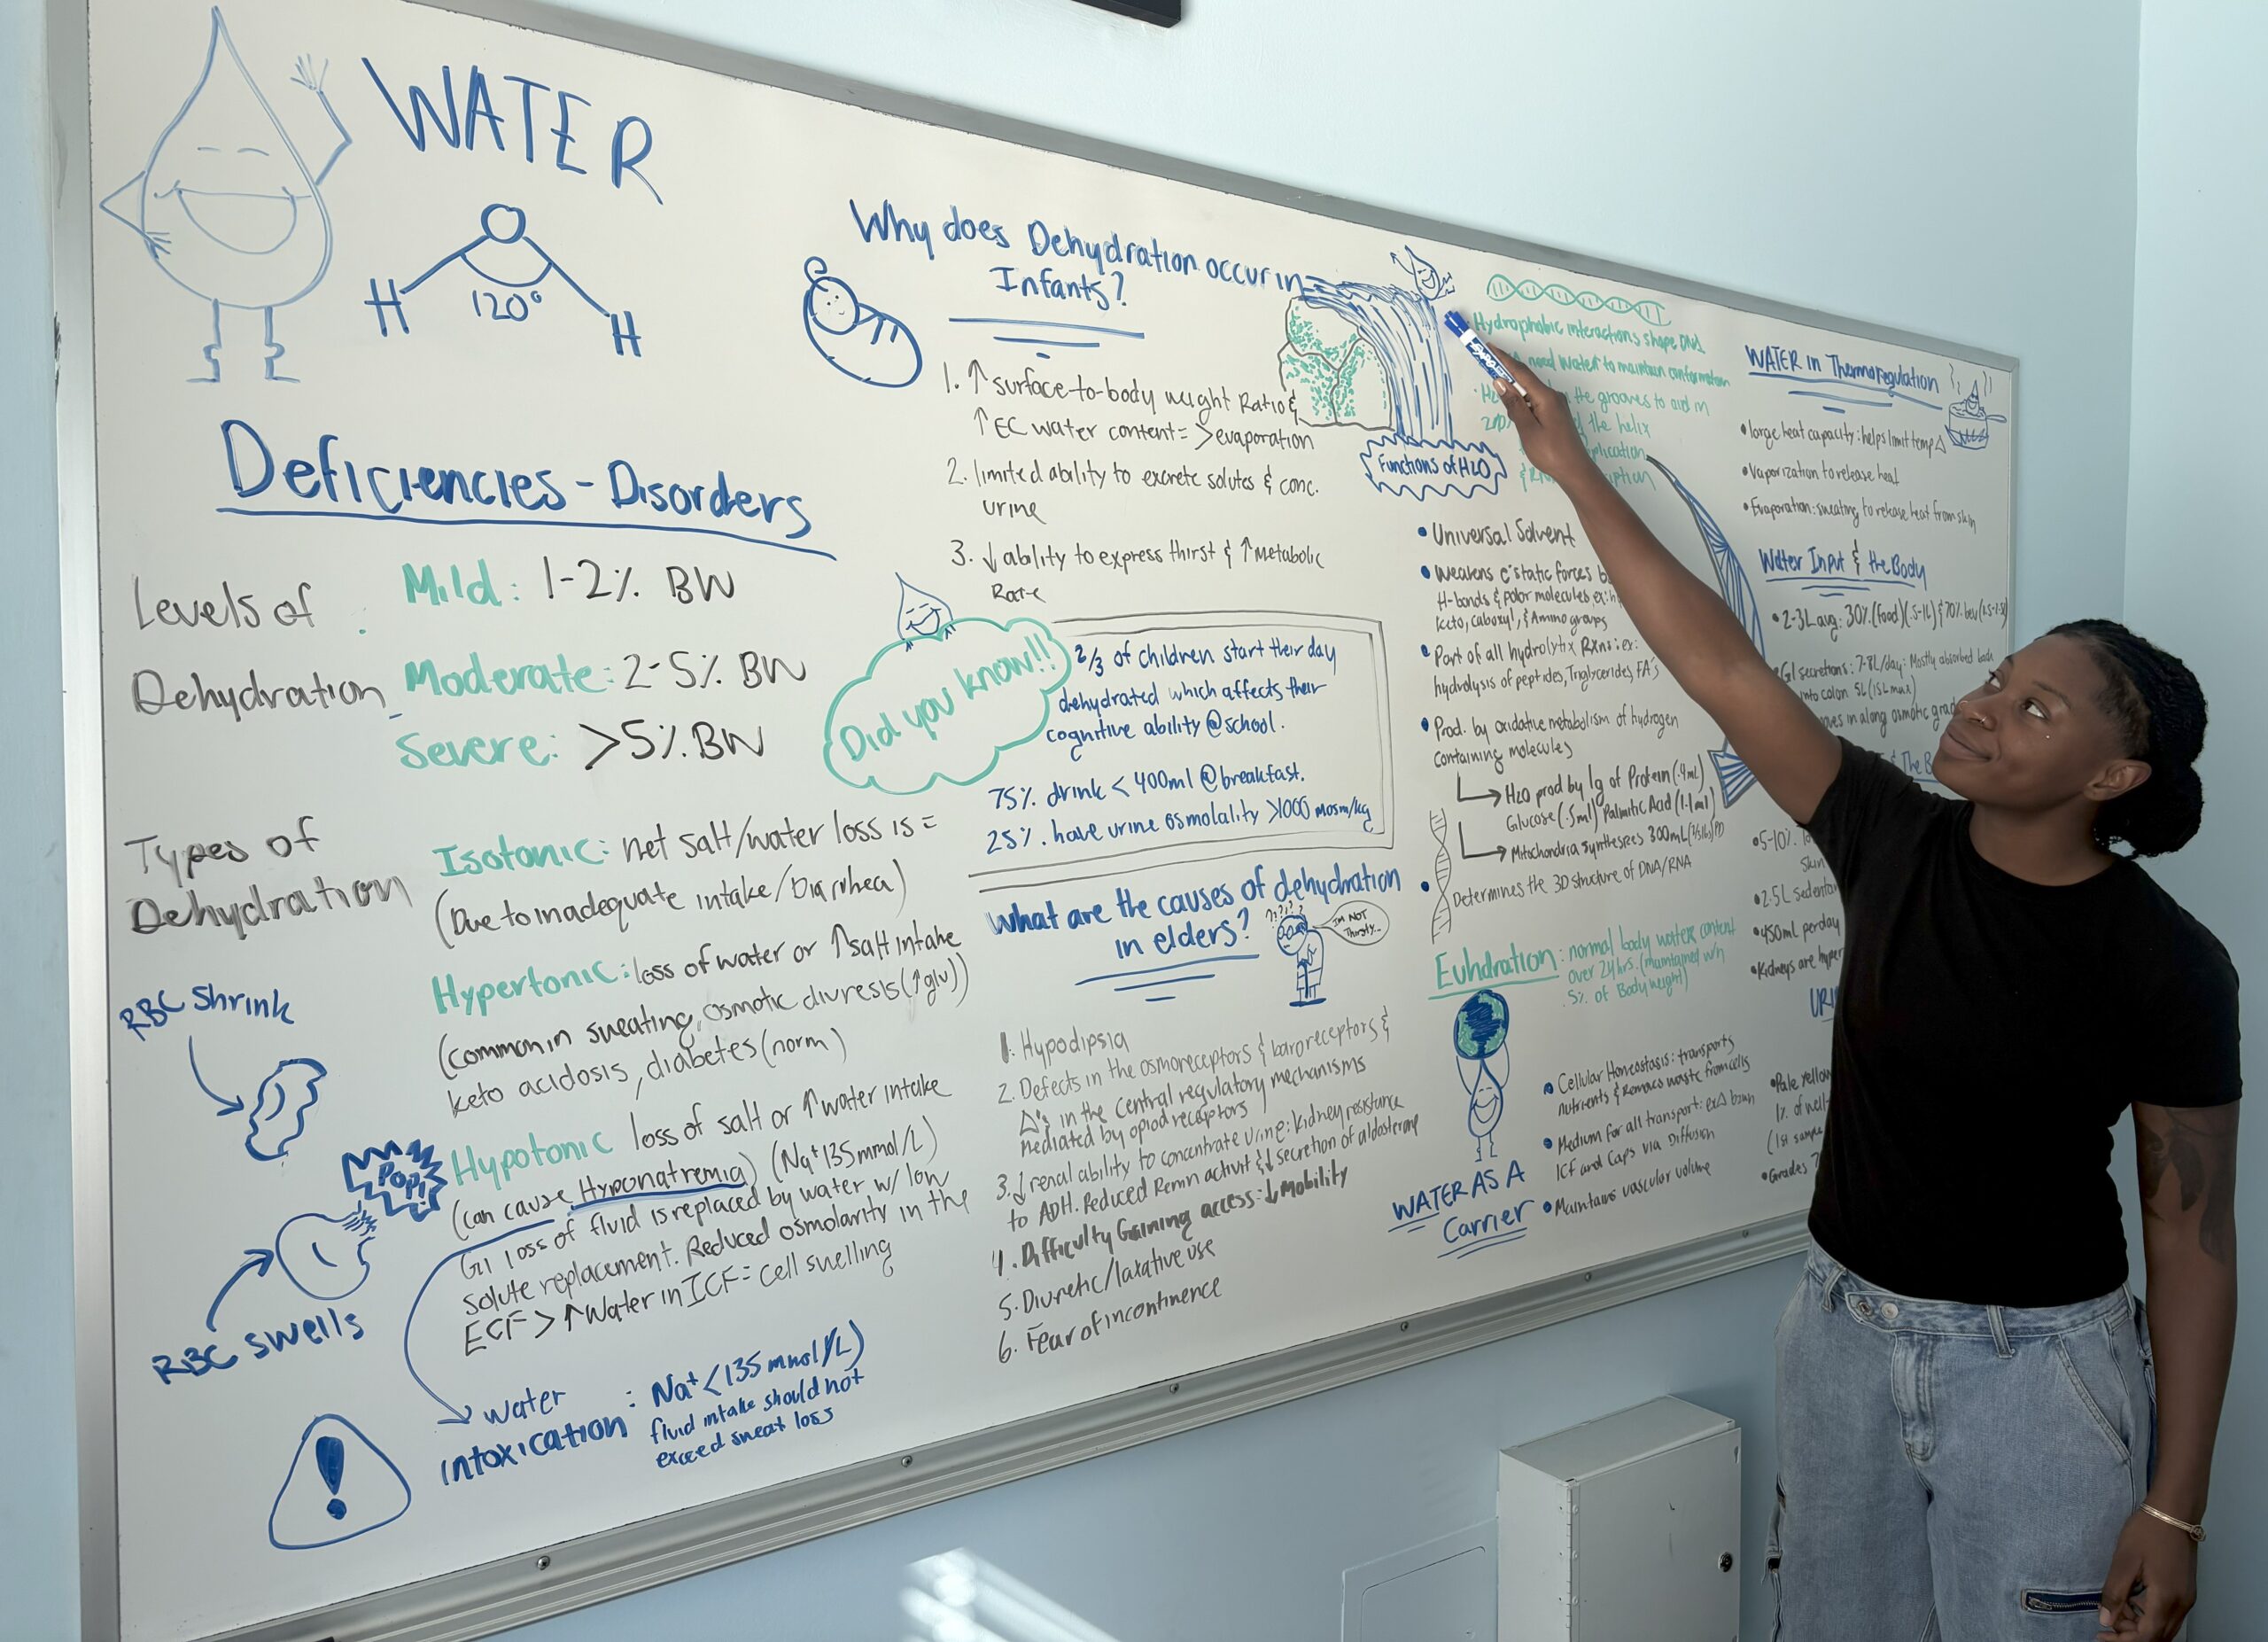 WATER
O
H
120°
H
Deficiencies - Disorders
Levels of
Dehydration
:
Mild: 1-2% BW
Moderate: 2-5% BW
Severe: >5% BW
Types of
Dehydration
Isotonic: net salt/water loss is =
(Due to inadequate intake/Diarrhea)
Hypertonic: loss of water or ↑salt intake
(common in sweating, osmotic diuresis(↑glu))
keto acidosis, diabetes (norm)
Hypotonic loss of salt or ↑water intake
(can cause Hyponatremia) (Na⁺135mmol/L)
GI loss of fluid is replaced by water w/ low
solute replacement. Reduced osmolarity in the
ECF > ↑Water in ICF = cell swelling
RBC shrink
POP!
RBC swells
!
water
intoxication
: Na⁺<135 mmol/L)
fluid intake should not
exceed sweat loss
Why does Dehydration occur in
Infants?
1. ↑ surface-to-body weight Ratio &
↑ EC water content = >evaporation
2. limited ability to excrete solutes & conc.
urine
3. ↓ ability to express thirst & ↑Metabolic
Rate
Did you know!!
2/3 of children start their day
dehydrated which affects their
cognitive ability @school.
75% drink < 400ml @breakfast.
25% have urine osmolality >1000 mosm/kg
What are the causes of dehydration
in elders?
????
I'm NOT
Thirsty...
1. Hypodipsia
2. Defects in the osmoreceptors & baroreceptors &
Δ's in the central regulatory mechanisms
Mediated by opiod receptors
3. ↓ renal ability to concentrate urine: Kidney resistance
to ADH. Reduced Renin activit & ↓ secretion of aldosterone
4. Difficulty Gaining access: ↓ Mobility
5. Diuretic/laxative use
6. Fear of incontinence
Functions of H2O
• Universal Solvent
• Weakens e⁻static forces
H-bonds & polar molecules, ex:
keto, caboxyl, & Amino groups
• Part of all hydrolytix Rxns: ex:
hydrolysis of peptides, Triglycerides, FA's
• Prod. by oxidative metabolism of hydrogen
containing molecules
H2O prod by 1g of Protein (.4ml)
Glucose (.5ml) Palmitic Acid (1.1ml)
Mitochondria synthesizes 300mL
• Determines the 3D structure of DNA/RNA
Euhdration: normal body water content
over 24hrs. (maintained w/n
.5% of Body weight)
WATER AS A
Carrier
• Cellular Homeostasis: transports
nutrients & Removes waste from cells
• Medium for all transport: ex Δ btwn
ICF and Caps via Diffusion
• Maintains vascular volume
Hydrophobic interactions shape DNA
need water to maintain conformation
the grooves to aid in
the helix
EXPO
WATER in Thermoregulation
• large heat capacity: helps limit temp Δ
• Vaporization to release heat
• Evaporation: sweating to release heat from skin
Water Input & the Body
• 2-3L avg: 30% (food) (.5-1L) & 70% bev
GI secretions: 7-8L/day: Mostly absorbed back
into colon 5L (15L max)
in along osmotic
& The B
• 5-10%
skin
• 2.5L
• 450mL per day
• Kidneys are
• Pale yellow
1% of well-
(1st sample
• Grades